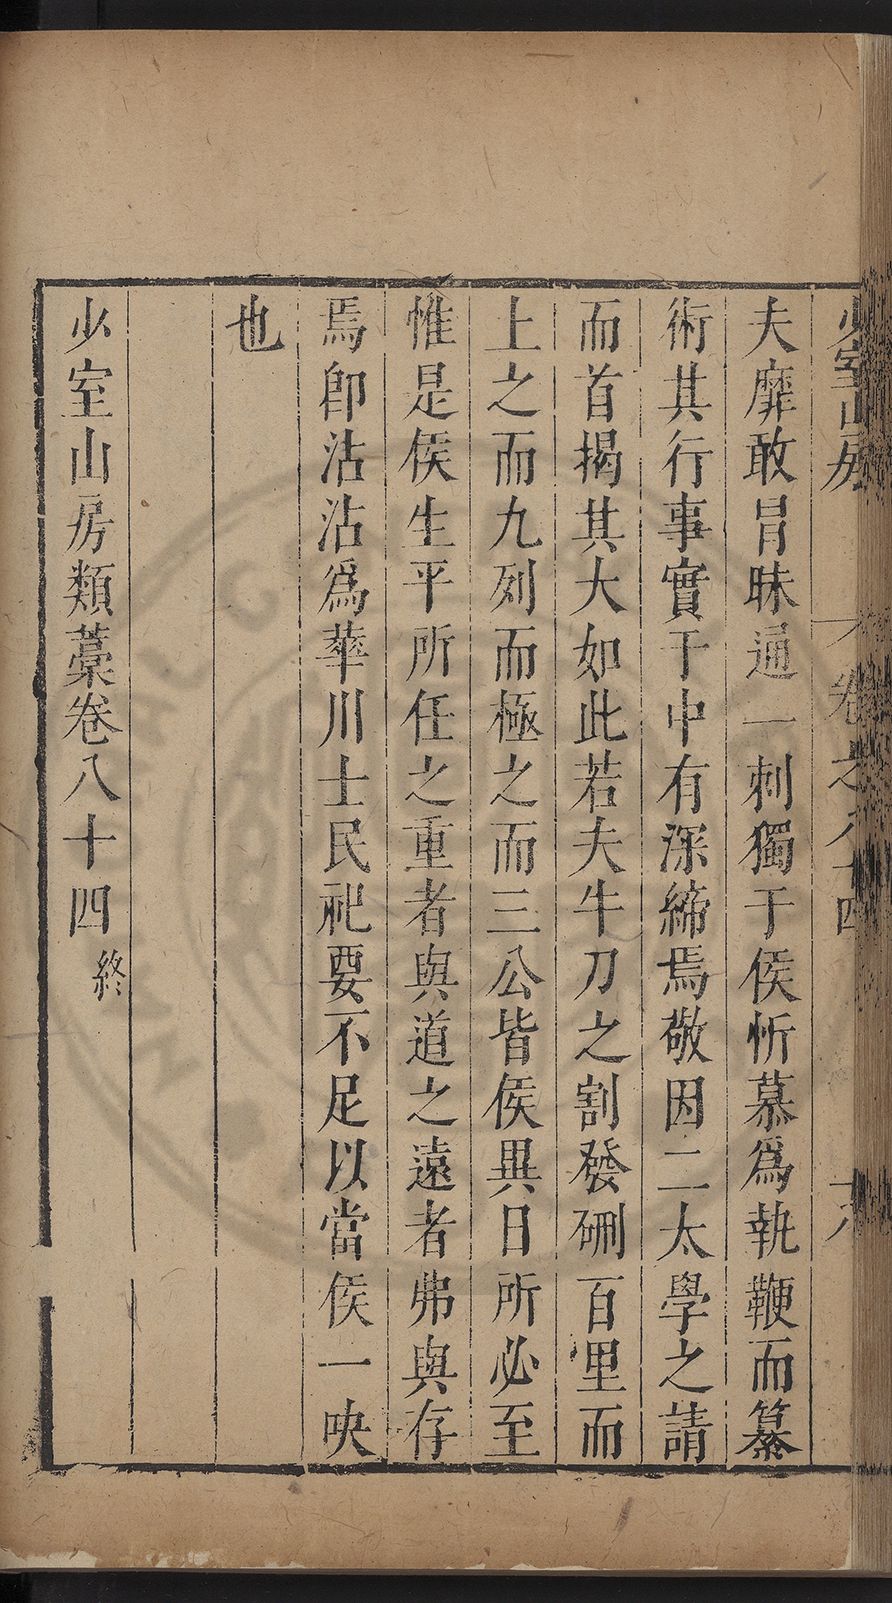 少室山房 卷之八十四 十八
夫靡敢冒昧通一刺獨于侯忻慕爲執鞭而纂
術其行事實于中有深締焉敬因二太學之請
而首揭其大如此若夫牛刀之割發硎百里而
上之而九列而極之而三公皆侯異日所必至
惟是侯生平所任之重者與道之遠者弗與存
焉卽沾沾爲華川士民祀要不足以當侯一吷
也
少室山房類藁卷八十四 終